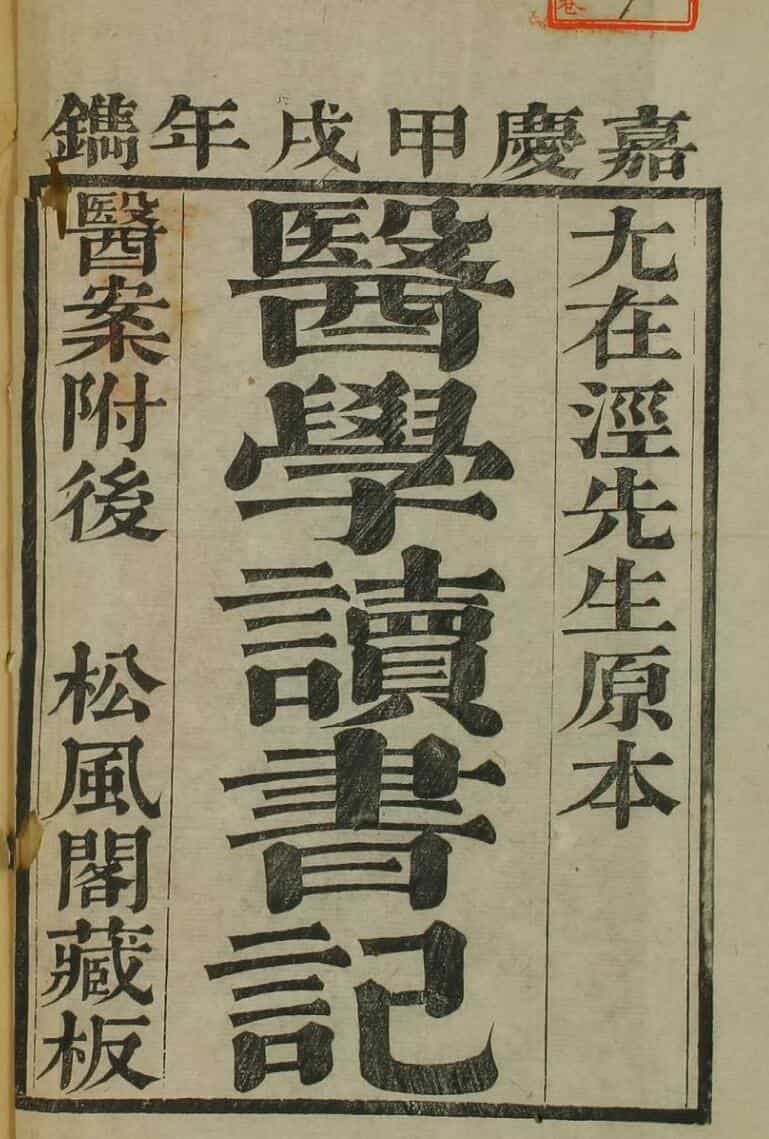 嘉慶甲戌年鐫
尢在涇先生原本
醫學讀書記
醫案附後 松風閣藏板